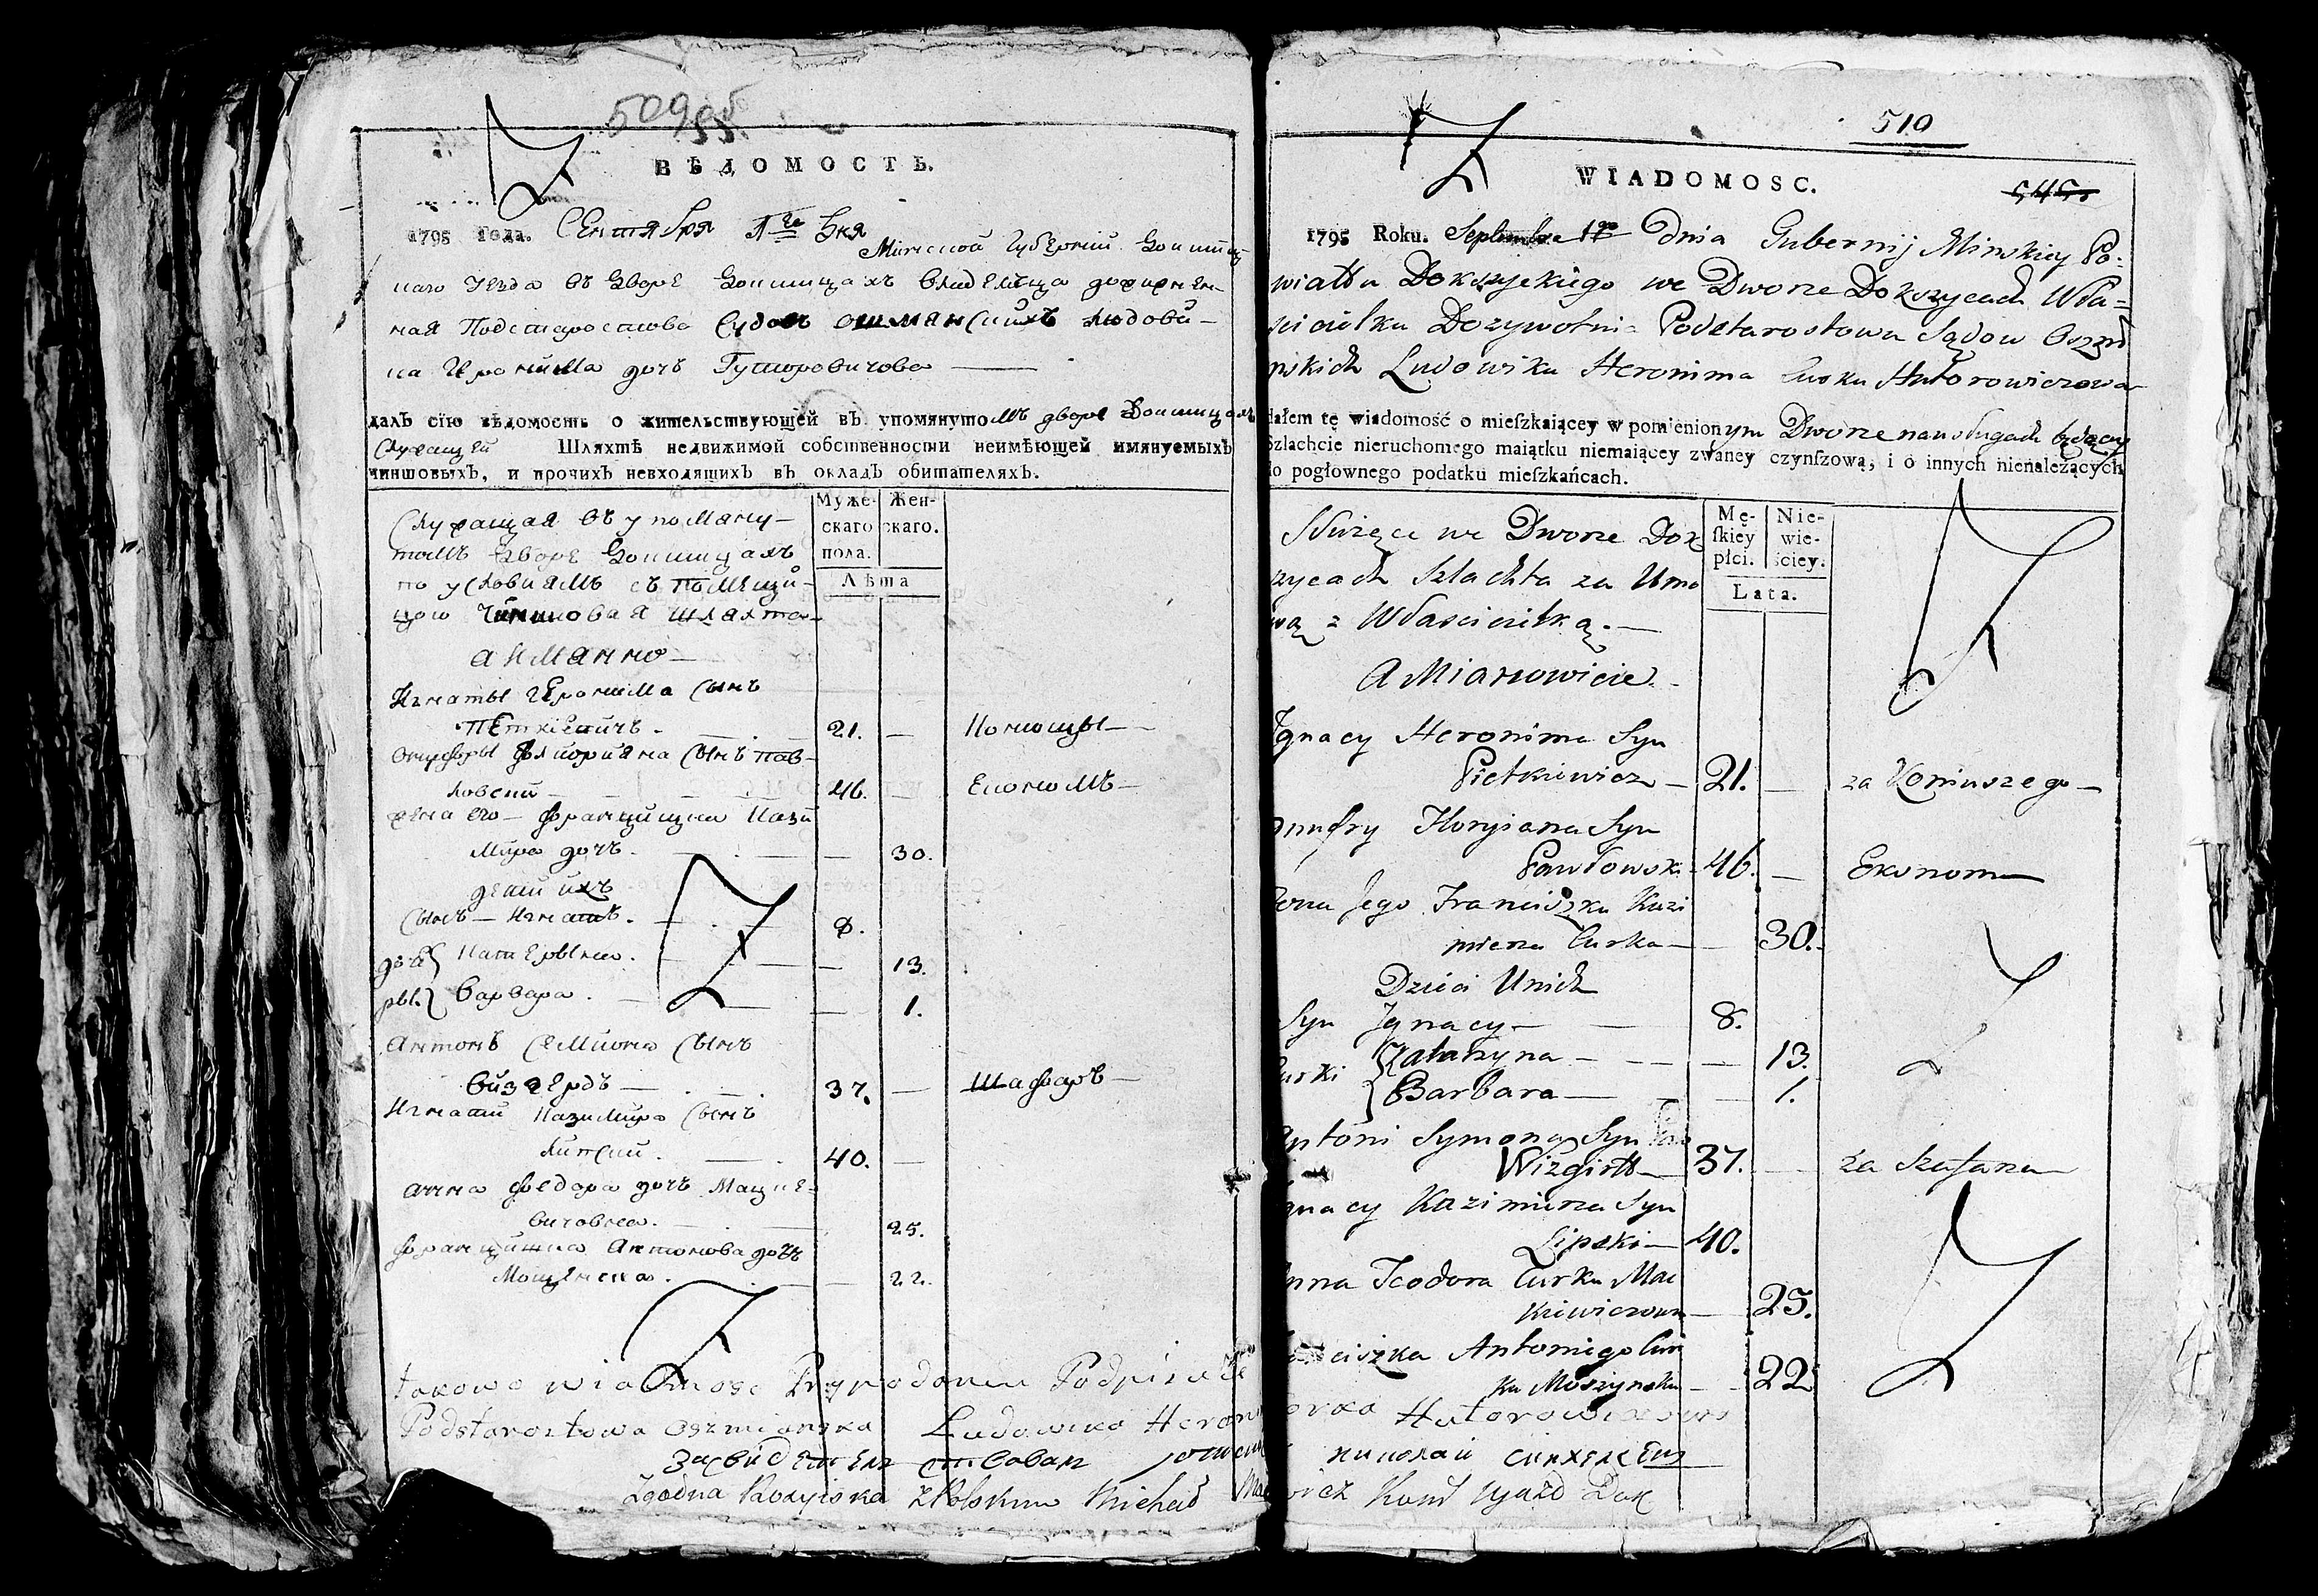 50995.
ВѢДОМОСТЬ.
1795 Года. Сентября 1го Дня
Минской Губернїи Докшиц
каго уезда въ Дворе Докшицахъ владелица дожизнен-
ная Подстаростова Судовъ ошмянскихъ Людови-
ка Иеронима дочь Гуторовичова
далъ сїю вѣдомость о жительствующей въ упомянутомъ дворе Докшицахъ
служащей Шляхтѣ недвижимой собственности неимѣющей имянуемыхъ
чиншовыхъ, и прочихъ невходящихъ въ окладъ обитателяхъ.
Муже-скаго пола. Жен-скаго.
Лѣта
Служащая въ упомяну-
томъ Дворе Докшицахъ
по условиямъ съ помещи-
цою чиншовая шляхта
а имянно
Игнаты Иеронима сынъ
Петкевичъ. 21. — Конюшы
Онуфры Флиорияна сынъ Пав-
ловски 46. — Економъ
жена его Францишка Кази
мира дочь. — 30.
дети ихъ
сынъ — Игнатъ. 8.
до-че Катерына. — 13.
ры. Варвара. — 1.
Антонъ Семиона сынъ
Визгердъ 37. — Шафаръ
Игнати Казимира сынъ
Липски. 40. —
Анна Федора дочь Мацке-
вичовна. 25.
Францишка Антонова дочь
Мощенска. — 22.
Takowo wiadmosc Przy podaniu Podpisuie
Podstarostowa Oszmianska Ludowika Heronima
Засвидетельствовалъ
Zgodna Rosyiska z Polskim Michał
510
WIADOMOSC.
545.
1795 Roku. Septembra 1go Dnia Gubernij Minskiey Po:
wiattu Dokszyckiego we Dworze Dokszycach Wła=
scicielka Dozywotnia Podstarostowa Sądow Oszmi
nskich Ludowika Heronima Curka Hutorowiczowa
dałem tę wiadomość o mieſzkaiącey w pomienionym Dworze na usługach będącey
Szlachcie nieruchomego maiątku niemaiącey zwaney czynſzową, i o innych nienależących
do pogłownego podatku mieſzkańcach.
Mę-ſkiey płci. Nie-wie-ściey.
Lata.
Służące we Dworze Dok
szycach Szlachta za Umo
wą z Włascicielką.
A Mianowicie
Ignacy Heronima Syn
Pietkiewicz 21. — za Koniuszego
Onufry Floryiana Syn
Pawłowski 46. — Ekonom
Żona Jego Franciszka Kazi
mierza Curka — 30.
Dzieci Unich
Syn Ignacy 8.
Curki Katarzyna — 13.
Barbara — 1.
Antoni Symona Syn
Wizgirtt 37. — za Szafarza
Ignacy Kazimierza Syn
Lipski 40.
Anna Teodora Curka Mac
kiewiczowna — 25.
Franciszka Antoniego Cur
ka Moszynska — 22
Curka Hutorowiczowa
николай